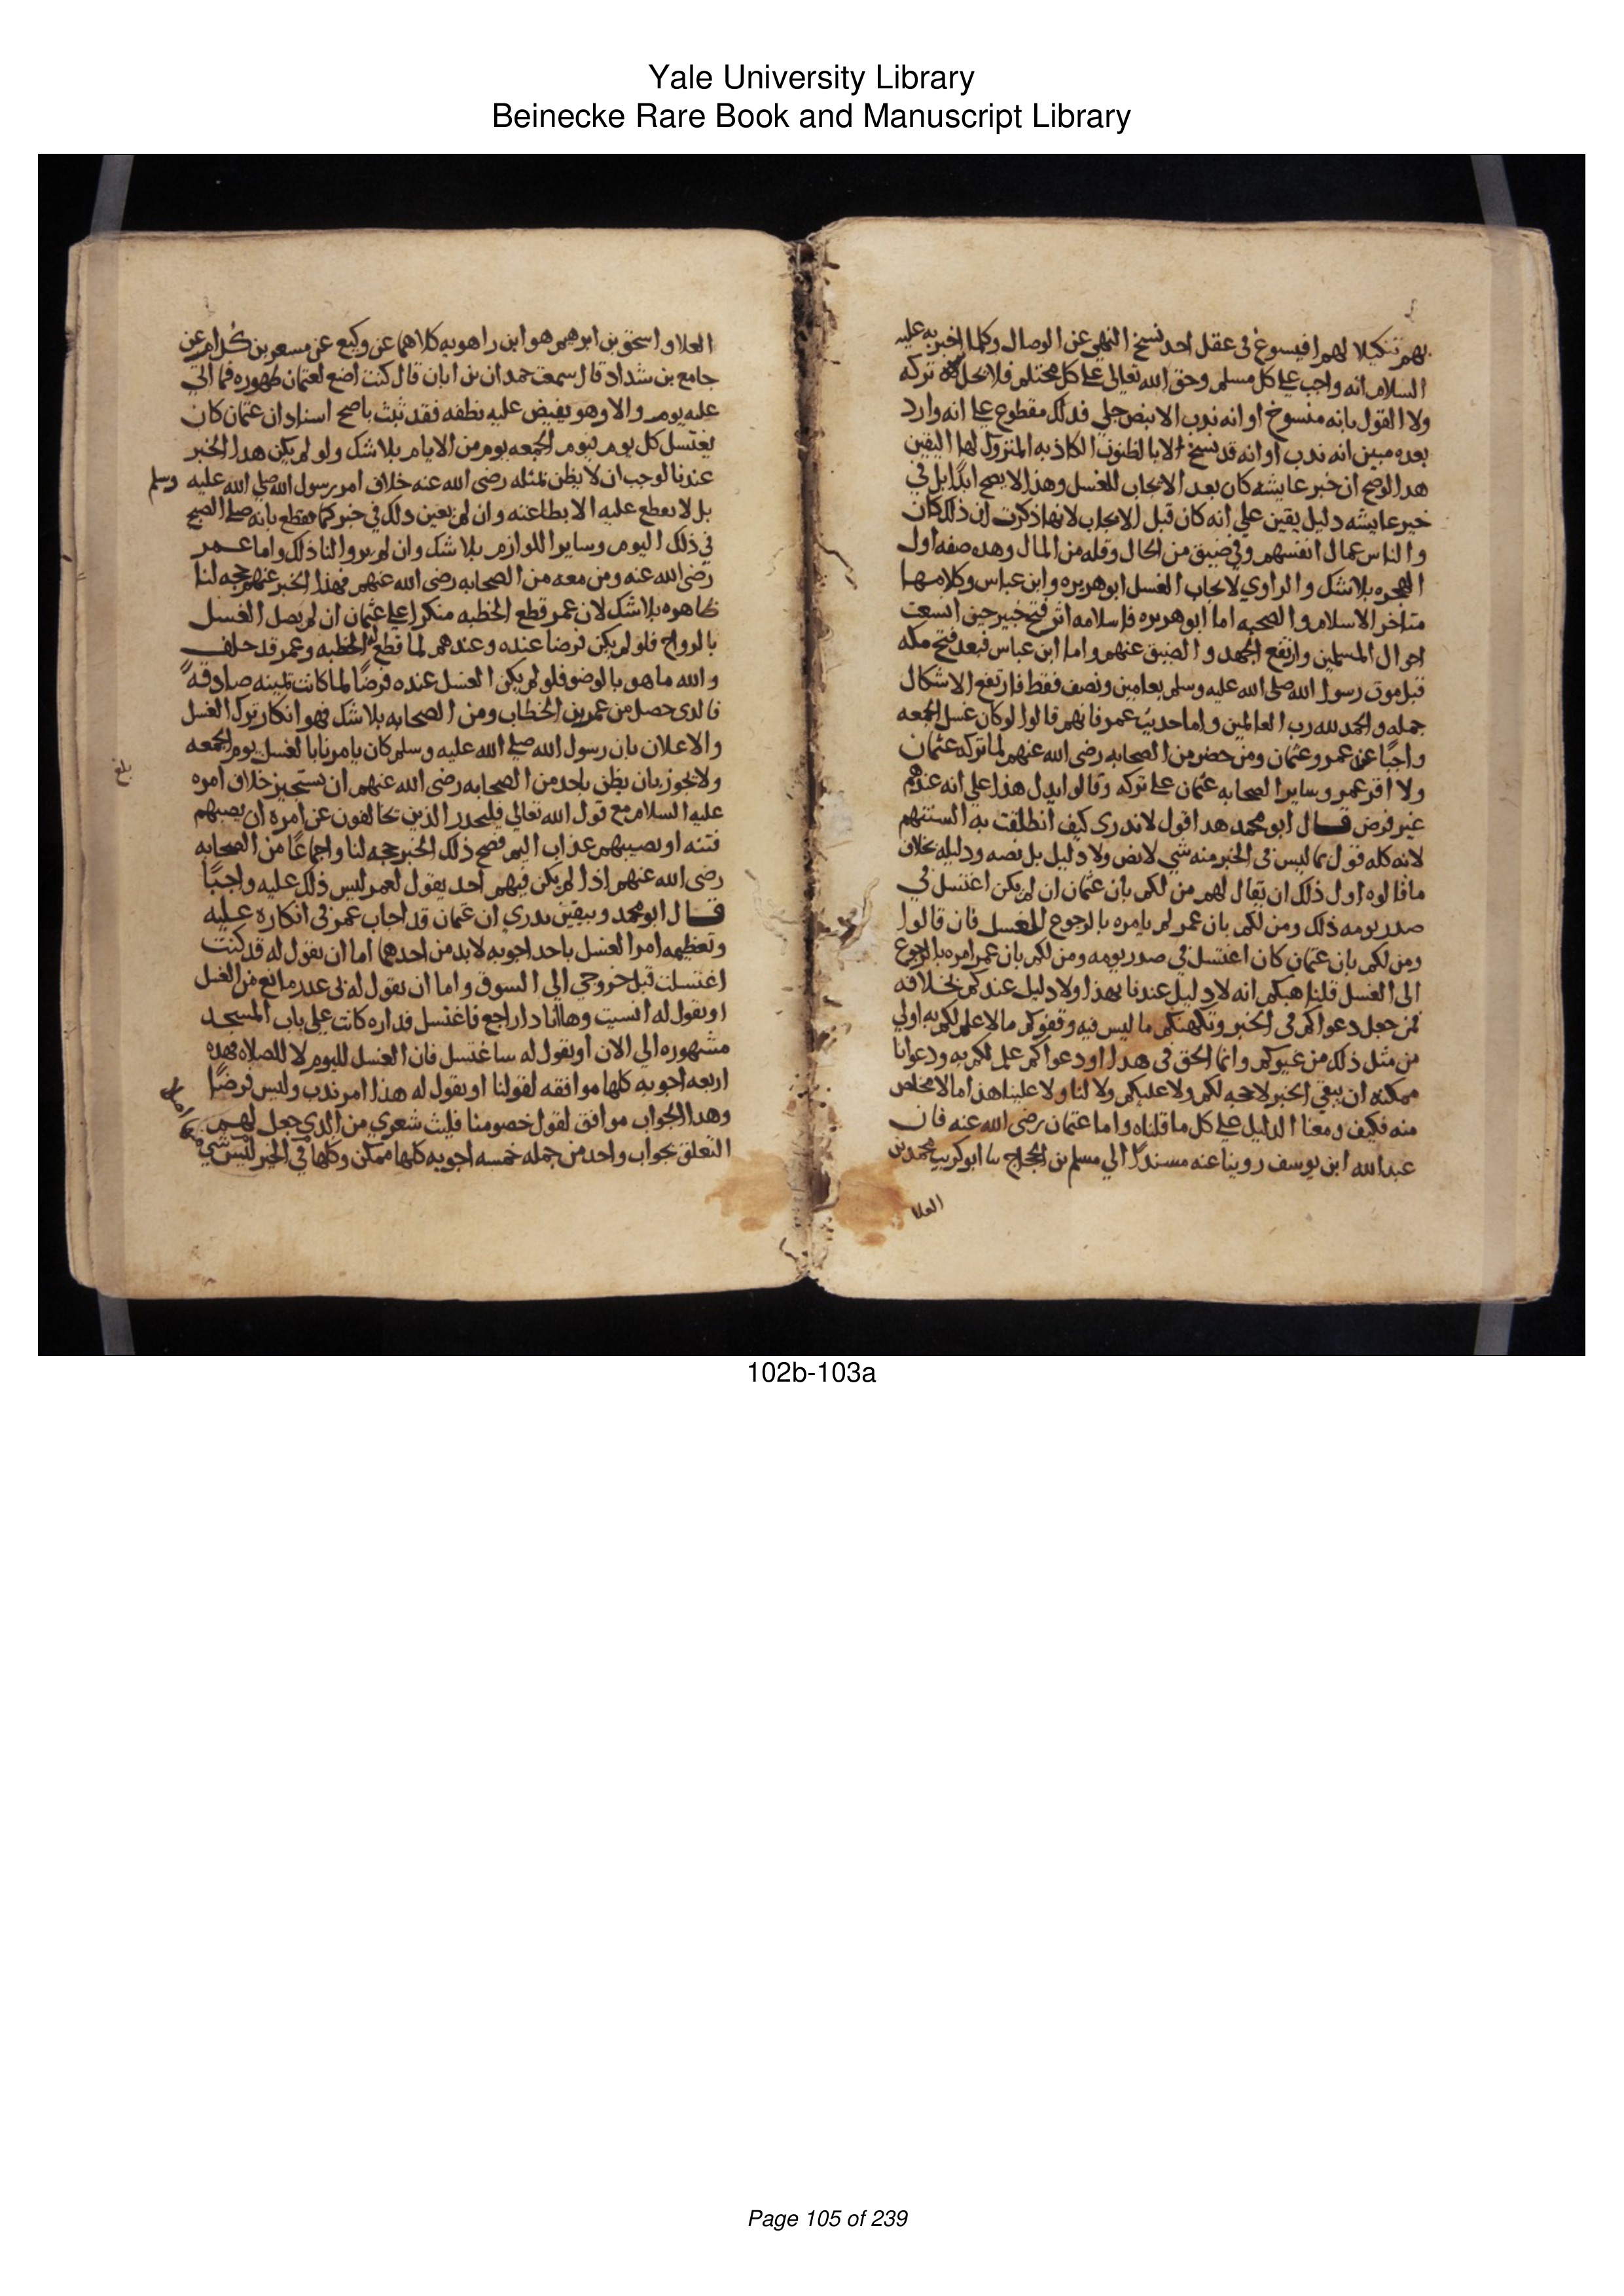 Yale University Library
Beinecke Rare Book and Manuscript Library
بهم تنكيلا لهم افيسوغ في عقل احد نسخ النهي عن الوصال وكلما اخبر به عليه
السلام انه واجب على كل مسلم وحق الله تعالى على كل محتلم فلا يحل تركه
ولا القول بانه منسوخ او انه ندب الا بنص جلي فذلك مقطوع على انه وارد
بعده مبين انه ندب او انه قد نسخ لا بالظنون الكاذبه المتروك لها اليقين
هذا لو صح ان خبر عايشه كان بعد الايجاب للغسل وهذا لا يصح ابدًا بل في
خبر عايشه دليل يقين على انه كان قبل الايجاب لانها ذكرت ان ذلك كان
والناس عمال انفسهم وفي ضيق من الحال وقله من المال وهذه صفه اول
الهجره بلا شك والراوي لايجاب الغسل ابو هريره وابن عباس وكلامهما
متاخر الاسلام والصحبه اما ابو هريره فاسلامه اثر فتح خيبر حين اتسعت
احوال المسلمين وارتفع الجهد والضيق عنهم واما ابن عباس فبعد فتح مكه
قبل موت رسول الله صلى الله عليه وسلم بعامين ونصف فقط فارتفع الاشكال
جمله والحمد لله رب العالمين واما حديث عمر فانهم قالوا لو كان غسل الجمعه
واجبًا عن عمر وعثمان ومن حضر من الصحابه رضى الله عنهم لما تركه عثمان
ولا اقر عمر وساير الصحابه عثمان على تركه وقالوا يدل هذا على انه عندهم
غير فرض قال ابو محمد هذا قول لا ندري كيف انطلقت به السنتهم
لانه كله قول بما ليس في الخبر منه شي لا نص ولا دليل بل نصه ودليله بخلاف
ما قالوه اول ذلك ان يقال لهم من لكم بان عثمان ان لم يكن اغتسل في
صدر يومه ذلك ومن لكم بان عمر لم يامره بالرجوع للغسل فان قالوا
ومن لكم بان عثمان كان اغتسل في صدر يومه ومن لكم بان عمر امره بالرجوع
الى الغسل قلنا هبكم انه لا دليل عندنا بهذا ولا دليل عندكم بخلافه
فمن جعل دعواكم في الخبر وتكهنكم ما ليس فيه وقفوكم ما لا علم لكم به اولي
من مثل ذلك من غيركم وانما الحق في هذا اذ دعواكم علم لكم به ودعوانا
ممكنه ان يبقى الخبر لا حجه لكم ولا عليكم ولا لنا ولا علينا هذا ما لا مخلص
منه فكيف ومعنا الدليل على كل ما قلناه واما عثمان رضى الله عنه فان
عبد الله ابن يوسف روينا عنه مسندًا الي مسلم بن الحجاج سا ابو كريب محمد بن
العلا
العلا واسحق بن ابرهيم هو ابن راهويه كلاهما عن وكيع عن مسعر بن كدام عن
جامع بن شداد قال سمعت حمدان بن ابان قال كنت اضع لعثمان طهوره فما اتى
عليه يوم والا وهو يفيض عليه نطفه فقد ثبت باصح اسناد ان عثمان كان
يغتسل كل يوم فيوم الجمعه يوم من الايام بلا شك ولو لم يكن هذا الخبر
عندنا لوجب ان لا يظن بمثله رضى الله عنه خلاف امر رسول الله صلى الله عليه وسلم
بل لا يقطع عليه الا بطاعته وان لم يعين ذلك في خبر كما نقطع بانه صلى الصبح
في ذلك اليوم وساير اللوازم بلا شك وان لم يرووا لنا ذلك واما عمر
رضى الله عنه ومن معه من الصحابه رضى الله عنهم فهذا الخبر عنهم حجه لنا
ظاهره بلا شك لان عمر قطع الخطبه منكرا على عثمان ان لم يصل الغسل
بالرواح فلو لم يكن فرضا عنده وعندهم لما قطع له الخطبه وعمر قد حلف
والله ما هو بالوضو فلو لم يكن الغسل عنده فرضًا لما كانت يمينه صادقه
فالذى حصل من عمر بن الخطاب ومن الصحابه بلا شك فهو انكار ترك الغسل
والاعلان بان رسول الله صلى الله عليه وسلم كان يامرنا بالغسل يوم الجمعه
بلغ
ولا يجوز بان يظن باحد من الصحابه رضى الله عنهم ان يستجيز خلاف امره
عليه السلام مع قول الله تعالى فليحذر الذين يخالفون عن امره ان تصيبهم
فتنه او يصيبهم عذاب اليم فصح ذلك الخبر حجه لنا واجماعًا من الصحابه
رضى الله عنهم اذا لم يكن فيهم احد يقول لعمر ليس ذلك عليه واجبًا
قال ابو محمد وبيقين ندري ان عثمان قد اجاب عمر في انكاره عليه
وتعظيمه امر الغسل باحد اجوبه لا بد من احدها اما ان يقول له قد كنت
اغتسلت قبل خروجي الي السوق واما ان يقول له لى عذر مانع من الغسل
او يقول له انسيت وها انا ذا راجع فاغتسل فداره كانت على باب المسجد
مشهوره الي الان او يقول له ساغتسل فان الغسل لليوم لا للصلاه فهذه
اربعه اجوبه كلها موافقه لقولنا او يقول له هذا امر ندب وليس فرضًا
وهذا الجواب موافق لقول خصومنا فليت شعري من الذي جعل لهم
التعلق بجواب واحد من جمله خمسه اجوبه كلها ممكن وكلها في الخبر ليس شي
102b-103a
Page 105 of 239